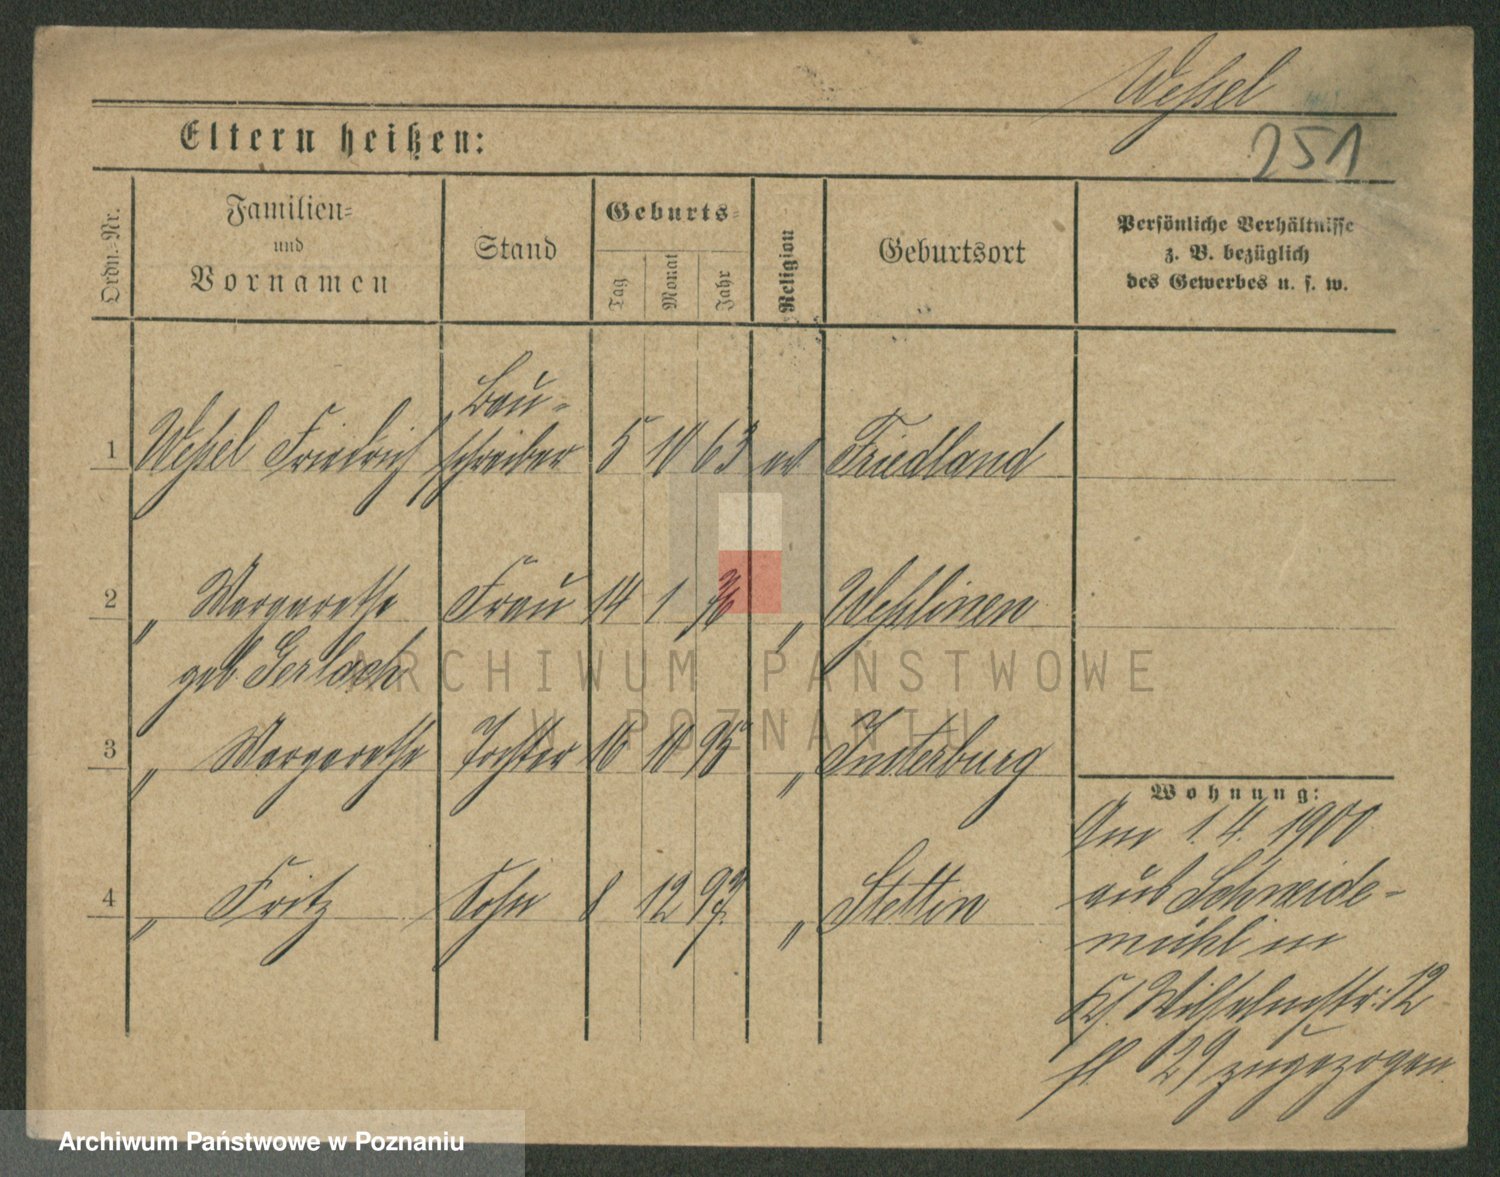 Weſsel
251
Eltern heißen:
Ordn.-Nr.
Familien-
und
Vornamen
Stand
Geburts-
Tag
Monat
Jahr
Religion
Geburtsort
Persönliche Verhältnisse
z. B. bezüglich
des Gewerbes u. s. w.
1 Weſsel Friedrich Bau-
schreiber 5 10 63 ev Friedland
2 " Margarethe Frau 14 1 " 
geb Gerlach
3 " Margarethe Tochter 16 10 95 " Insterburg
4 " Fritz Sohn 8 12 97 " Stettin
Wohnung:
Am 1. 4. 1900
aus Schneide-
mühl in
Wilhelmstr: 12
29 zugezogen
ARCHIWUM PAŃSTWOWE
W POZNANIU
Archiwum Państwowe w Poznaniu